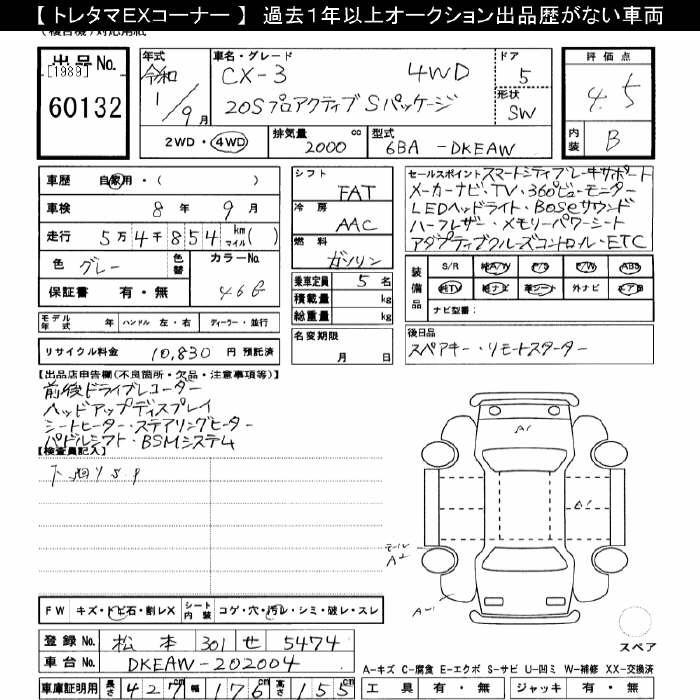 【トレタマEXコーナー】 過去1年以上オークション出品歴がない車両
出品No. [1989] 60132
年式 令和 1/9月
車名・グレード CX-3 4WD
20Sプロアクティブ Sパッケージ
ドア 5
形状 SW
評価点 4.5
内装 B
2WD・4WD 排気量 2000 cc 型式 6BA -DKEAW
車歴 自家用・( )
車検 8年 9月
走行 5万4千854 km マイル( )
色 グレー 色替 カラーNo. 46G
保証書 有・無
モデル年式 年 ハンドル 左・右 ディーラー・並行
リサイクル料金 10,830 円 預託済
シフト FAT
冷房 AAC
燃料 ガソリン
乗車定員 5名
積載量 kg
総重量 kg
名変期限 月 日
セールスポイント スマートシティブレーキサポート
メーカーナビ・TV・360°ビューモニター
LEDヘッドライト・Boseサウンド
ハーフレザー・メモリーパワーシート
アダプティブクルーズコントロール・ETC
装備品 S/R 純A/W P/S P/W ABS
純TV 純ナビ 革シート 外ナビ エアB
ナビ型番:
後日品
スペアキー・リモートスターター
【出品店申告欄(不良箇所・欠品・注意事項等)】
前後ドライブレコーダー
ヘッドアップディスプレイ
シートヒーター・ステアリングヒーター
パドルシフト・BSMシステム
【検査員記入】
下廻りSP
A1
A1
モール A2
A-1
スペア
FW キズ・トビ石・割レX シート内装 コゲ・穴・汚レ・シミ・破レ・スレ
登録No. 松本 301 せ 5474
車台No. DKEAW-202004
車庫証明用 長さ 427cm 幅 176cm 高さ 155cm
A-キズ C-腐食 E-エクボ S-サビ U-凹ミ W-補修 XX-交換済
工具 有・無 ジャッキ 有・無